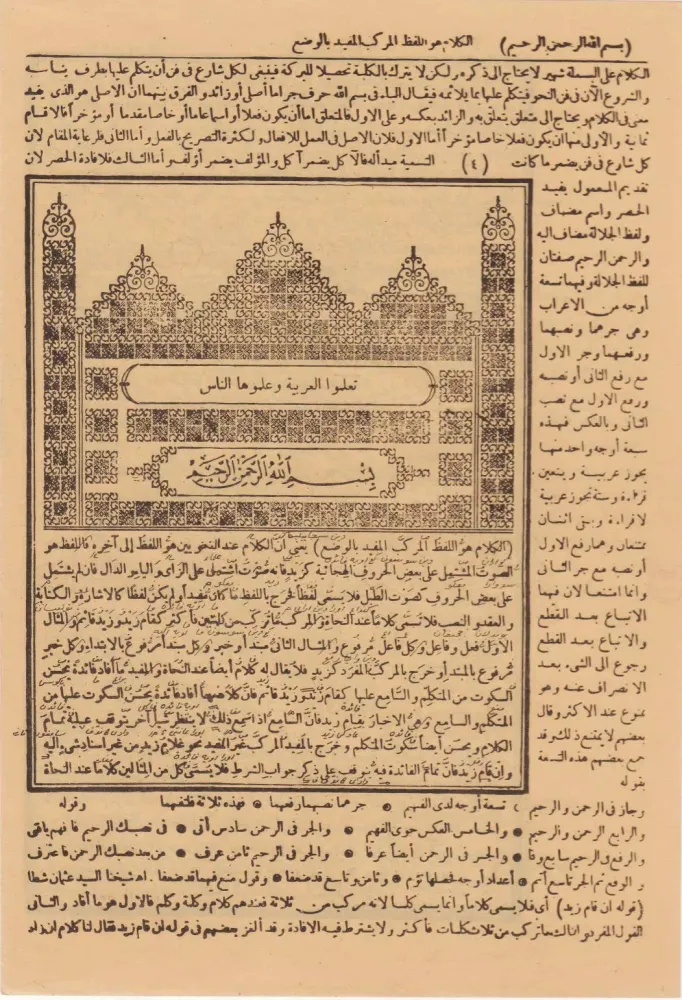 (بسم الله الرحمن الرحيم) الكلام هو اللفظ المركب المفيد بالوضع
الكلام على البسملة شهير لا يحتاج الى ذكره ولكن لا يترك بالكلية تحصيلا للبركة فينبغى لكل شارع فى فن أن يتكلم عليها بطرف يناسبه
والشروع الآن فى فن النحو فيتكلم عليها بما يلائمه فيقال الباء فى بسم الله حرف جر اما أصلى أو زائد والفرق بينهما ان الاصلى هو الذى يفيد
معنى فى الكلام ويحتاج الى متعلق يتعلق به والزائد بعكسه وعلى الاول فالمتعلق اما أن يكون فعلا أو اسما عاما أو خاصا مقدما أو مؤخرا فالاقسام
ثمانية والاولى منها ان يكون فعلا خاصا مؤخرا أما الاول فلان الاصل فى العمل للافعال ولكثرة التصريح بالفعل وأما الثانى فلرعاية المقام لان
كل شارع فى فن يضمر ما كانت (٤) التسمية مبدأ له فالآكل يضمر آكل والمؤلف يضمر أؤلف وأما الثالث فلافادة الحصر لان
تقديم المعمول يفيد
الحصر واسم مضاف
ولفظ الجلالة مضاف اليه
والرحمن الرحيم صفتان
للفظ الجلالة وفيهما تسعة
أوجه من الاعراب
وهى جرهما ونصبهما
ورفعهما وجر الاول
مع رفع الثانى أو نصبه
ورفع الاول مع نصب
الثانى وبالعكس فهذه
سبعة أوجه واحد منها
يجوز عربية ويتعين
قراءة وستة تجوز عربية
لا قراءة وبقى اثنان
ممتنعان وهما رفع الاول
أو نصبه مع جر الثانى
وانما امتنعا لان فيهما
الاتباع بعد القطع
والاتباع بعد القطع
رجوع الى الشىء بعد
الانصراف عنه وهو
ممنوع عند الاكثر وقال
بعضهم لا يمتنع ذلك وقد
جمع بعضهم هذه التسعة
بقوله
تعلموا العربية وعلموها الناس
بسم الله الرحمن الرحيم
(الكلام هو اللفظ المركب المفيد بالوضع) يعنى أن الكلام عند النحويين هو اللفظ إلى آخره فاللفظ هو
الصوت المشتمل على بعض الحروف الهجائية كزيد فانه صوت اشتمل على الزاى والياء والدال فان لم يشتمل
على بعض الحروف كصوت الطبل فلا يسمى لفظا فخرج باللفظ ما كان مفيدا ولم يكن لفظا كالاشارة والكتابة
والعقد والنصب فلا تسمى كلاما عند النحاة والمركب ما تركب من كلمتين فأكثر كقام زيد وزيد قائم والمثال
الاول فعل وفاعل وكل فاعل مرفوع والمثال الثانى مبتدأ وخبر وكل مبتدأ مرفوع بالابتداء وكل خبر
مرفوع بالمبتدأ وخرج بالمركب المفرد كزيد فلا يقال له كلام أيضا عند النحاة والمفيد ما أفاد فائدة يحسن
السكوت من المتكلم والسامع عليها كقام زيد وزيد قائم فان كلا منهما أفاد فائدة يحسن السكوت عليها من
المتكلم والسامع وهى الاخبار بقيام زيد فان السامع اذا سمع ذلك لا ينتظر شيأ آخر يتوقف عليه تمام
الكلام ويحسن أيضا سكوت المتكلم وخرج بالمفيد المركب غير المفيد نحو غلام زيد من غير اسناد شىء اليه
وإن قام زيد فان تمام الفائدة فيه يتوقف على ذكر جواب الشرط فلا يسمى كل من المثالين كلاما عند النحاة
وجاز فى الرحمن والرحيم ، تسعة أوجه لدى الفهيم ● جرهما نصبهما رفعهما ● فهذه ثلاثة فلتفهما وقوله
والرابع الرحمن والرحيم ● والخامس العكس حوى الفهيم ● والجر فى الرحمن سادس أتى ● فى نصبك الرحيم فافهم يافتى
والرفع فى الرحيم سابع وفا ● والجر فى الرحمن أيضا عرفا ● والجر فى الرحيم ثامن عرف ● من بعد نصبك الرحمن فاعترف
والرفع ثم الجر تاسع أتم ● أعداد أوجه لحصلها تؤم ● وثامن وتاسع قد ضعفا ● وقول منع فيهما قد ضعفا . اه شيخنا السيد عثمان شطا
(قوله ان قام زيد) أى فلا يسمى كلاما وانما يسمى كلما لانه مركب من ثلاثة فعندهم كلام وكلمة وكلم فالاول هو ما أفاد والثانى
القول المفرد والثالث ما تركب من ثلاث كلمات فأكثر ولا يشترط فيه الافادة وقد ألغز بعضهم فى قوله ان قام زيد فقال لنا كلام ان زاد